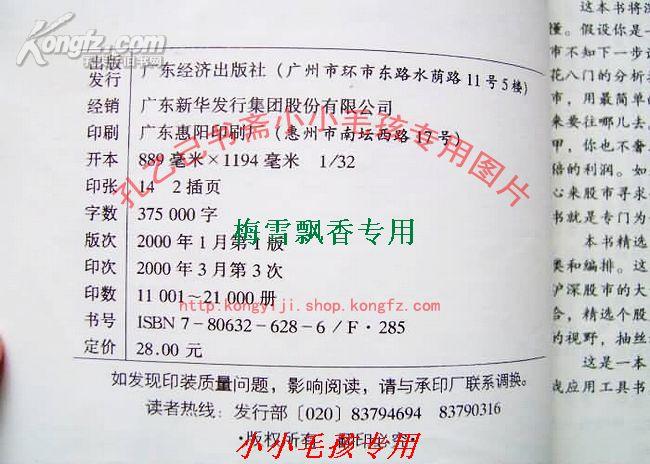 Kongfz.com
孔夫子旧书网
出版
发行 广东经济出版社(广州市环市东路水荫路11号5楼)
经销 广东新华发行集团股份有限公司
印刷 广东惠阳印刷厂(惠州市南坛西路17号)
开本 889毫米×1194毫米 1/32
印张 14 2插页
字数 375 000字
版次 2000年1月第1版
印次 2000年3月第3次
印数 11 001~21 000册
书号 ISBN 7-80632-628-6/F·285
定价 28.00元
如发现印装质量问题,影响阅读,请与承印厂联系调换。
读者热线:发行部〔020〕83794694 83790316
·版权所有 翻印必究·
孔乙己书斋小小毛孩专用图片
梅雪飘香专用
http://kongyiji.shop.kongfz.com
小小毛孩专用
这本书将
懂。假设你是一
市不知下一步
花八门的分析
市,用最简单的
来要往哪儿去
甲,你也不奢
倍的利润。如
心来股市寻求
书就是专门为
本书精选
类和编排。这
沪深股市的大
合,精选个股
的视野,抽丝
这是一本
战应用工具书